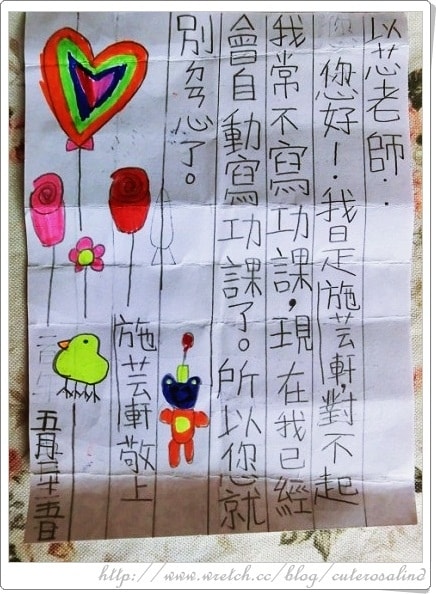 以芯老師：
您好！我是施芸軒，對不起
我常不寫功課，現在我已經
會自動寫功課了。所以您就
別ㄢ心了。
施芸軒敬上
五月二十五日
http://www.wretch.cc/blog/cuterosalind